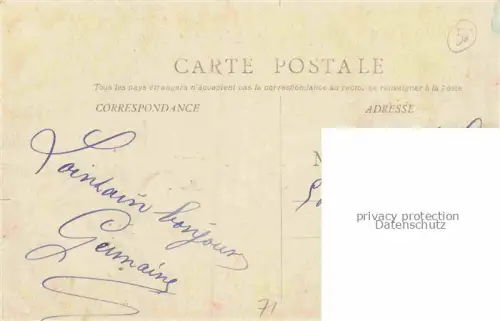 CARTE POSTALE
Tous les pays étrangers n'acceptent pas la correspondance au recto, se renseigner à la Poste
CORRESPONDANCE
ADRESSE
Lointain bonjour
Germaine
privacy protection
Datenschutz
71